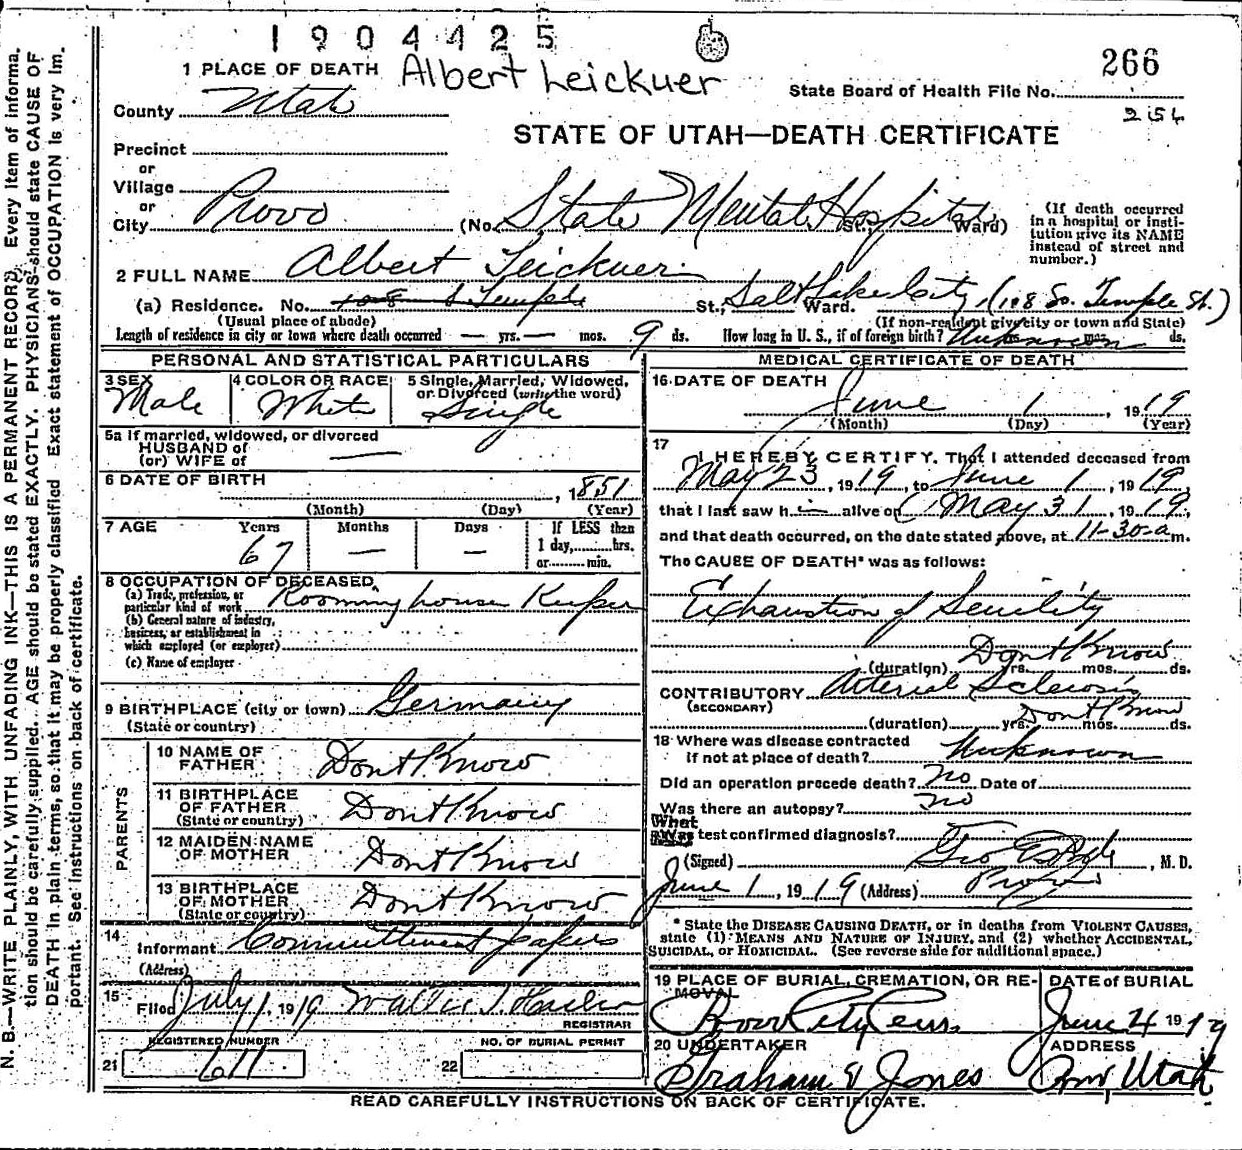 1904425
266
1 PLACE OF DEATH Albert Leickuer
State Board of Health File No.
County Utah
256
STATE OF UTAH—DEATH CERTIFICATE
Precinct
or
Village
or
City Provo (No. State Mental Hospital St., Ward)
(If death occurred in a hospital or insti-
tution give its NAME
instead of street and
number.)
2 FULL NAME Albert Leickuer
(a) Residence. No. 108 S Temple St., Salt Lake City Ward. (108 So. Temple St.)
(Usual place of abode) (If non-resident give city or town and State)
Length of residence in city or town where death occurred — yrs. — mos. 9 ds. How long in U. S., if of foreign birth? Unknown mos. ds.
PERSONAL AND STATISTICAL PARTICULARS
3 SEX Male
4 COLOR OR RACE White
5 Single, Married, Widowed,
or Divorced (write the word)
Single
5a If married, widowed, or divorced
HUSBAND of
(or) WIFE of —
6 DATE OF BIRTH , 1851
(Month) (Day) (Year)
7 AGE Years Months Days If LESS than
67 — — 1 day, hrs.
or min.
8 OCCUPATION OF DECEASED
(a) Trade, profession, or
particular kind of work Rooming house Keeper
(b) General nature of industry,
business, or establishment in
which employed (or employer)
(c) Name of employer
9 BIRTHPLACE (city or town) Germany
(State or country)
PARENTS
10 NAME OF
FATHER Dont Know
11 BIRTHPLACE
OF FATHER
(State or country) Dont Know
12 MAIDEN NAME
OF MOTHER Dont Know
13 BIRTHPLACE
OF MOTHER
(State or country) Dont Know
14
Informant Committment papers
(Address)
15
Filed July 1, 1919
REGISTRAR
REGISTERED NUMBER
21 611
NO. OF BURIAL PERMIT
22
MEDICAL CERTIFICATE OF DEATH
16 DATE OF DEATH
June 1, 1919
(Month) (Day) (Year)
17
I HEREBY CERTIFY, That I attended deceased from
May 23, 1919, to June 1, 1919,
that I last saw him alive on May 31, 1919,
and that death occurred, on the date stated above, at 11-30-a m.
The CAUSE OF DEATH* was as follows:
Exhaustion of Senility
Dont Know
(duration) yrs. mos. ds.
CONTRIBUTORY Arterial Sclerosis
(SECONDARY) Dont Know
(duration) yrs. mos. ds.
18 Where was disease contracted
if not at place of death? Unknown
Did an operation precede death? no Date of
Was there an autopsy? no
What
test confirmed diagnosis?
(Signed) Geo , M. D.
June 1, 1919 (Address) Provo
* State the DISEASE CAUSING DEATH, or in deaths from VIOLENT CAUSES,
state (1) MEANS AND NATURE OF INJURY, and (2) whether ACCIDENTAL,
SUICIDAL, or HOMICIDAL. (See reverse side for additional space.)
19 PLACE OF BURIAL, CREMATION, OR RE-
MOVAL
Provo City Cem.
DATE OF BURIAL
June 4 1919
20 UNDERTAKER
Graham & Jones
ADDRESS
Utah
READ CAREFULLY INSTRUCTIONS ON BACK OF CERTIFICATE.
N. B.—WRITE PLAINLY, WITH UNFADING INK—THIS IS A PERMANENT RECORD. Every item of informa-
tion should be carefully supplied. AGE should be stated EXACTLY. PHYSICIANS should state CAUSE OF
DEATH in plain terms, so that it may be properly classified. Exact statement of OCCUPATION is very im-
portant. See instructions on back of certificate.